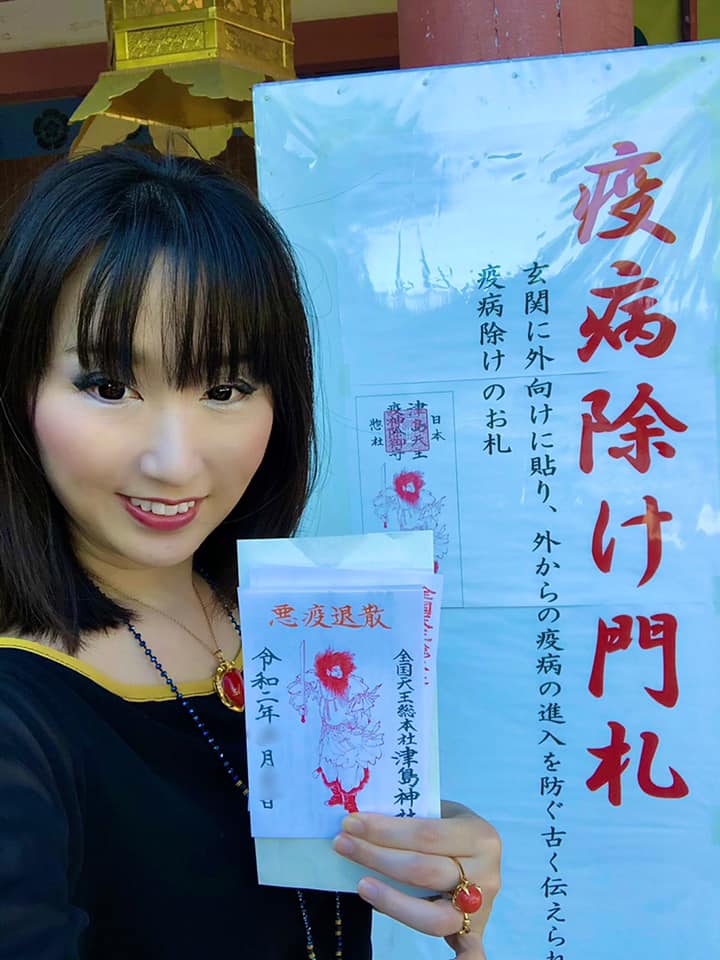 疫病除け門札
玄関に外向けに貼り、外からの疫病の進入を防ぐ古く伝えられ
疫病除けのお札
日本
津島天王
惣社
悪疫退散
全国天王総本社 津島神社
令和二年 月 日